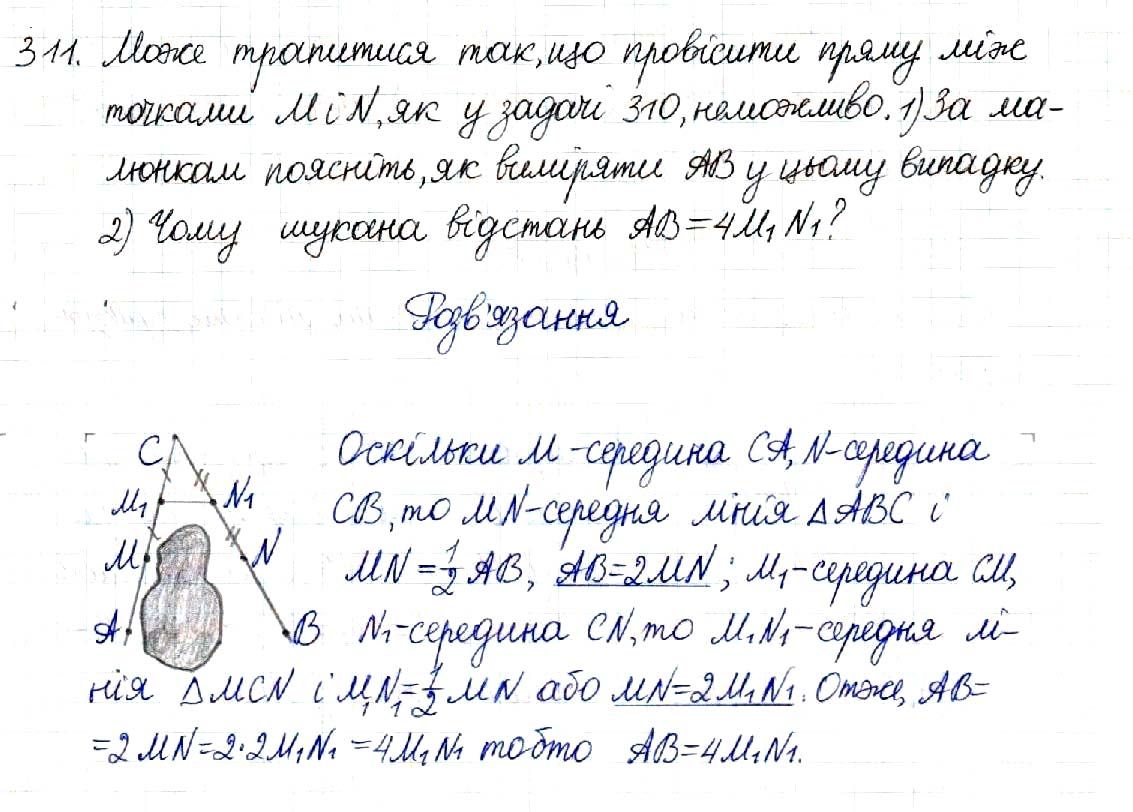 311. Може трапитися так, що провісити пряму між
точками M і N, як у задачі 310, неможливо. 1) За ма-
люнкам поясніть, як виміряти AB у цьому випадку.
2) Чому шукана відстань AB=4M₁N₁?
Розв'язання
C
M₁ N₁
M N
A B
Оскільки M-середина CA, N-середина
CB, то MN-середня лінія △ABC і
MN=1/2 AB, AB=2MN; M₁-середина CM,
N₁-середина CN, то M₁N₁-середня лі-
нія △MCN і M₁N₁=1/2 MN або MN=2M₁N₁. Отже, AB=
=2MN=2·2M₁N₁=4M₁N₁ тобто AB=4M₁N₁.